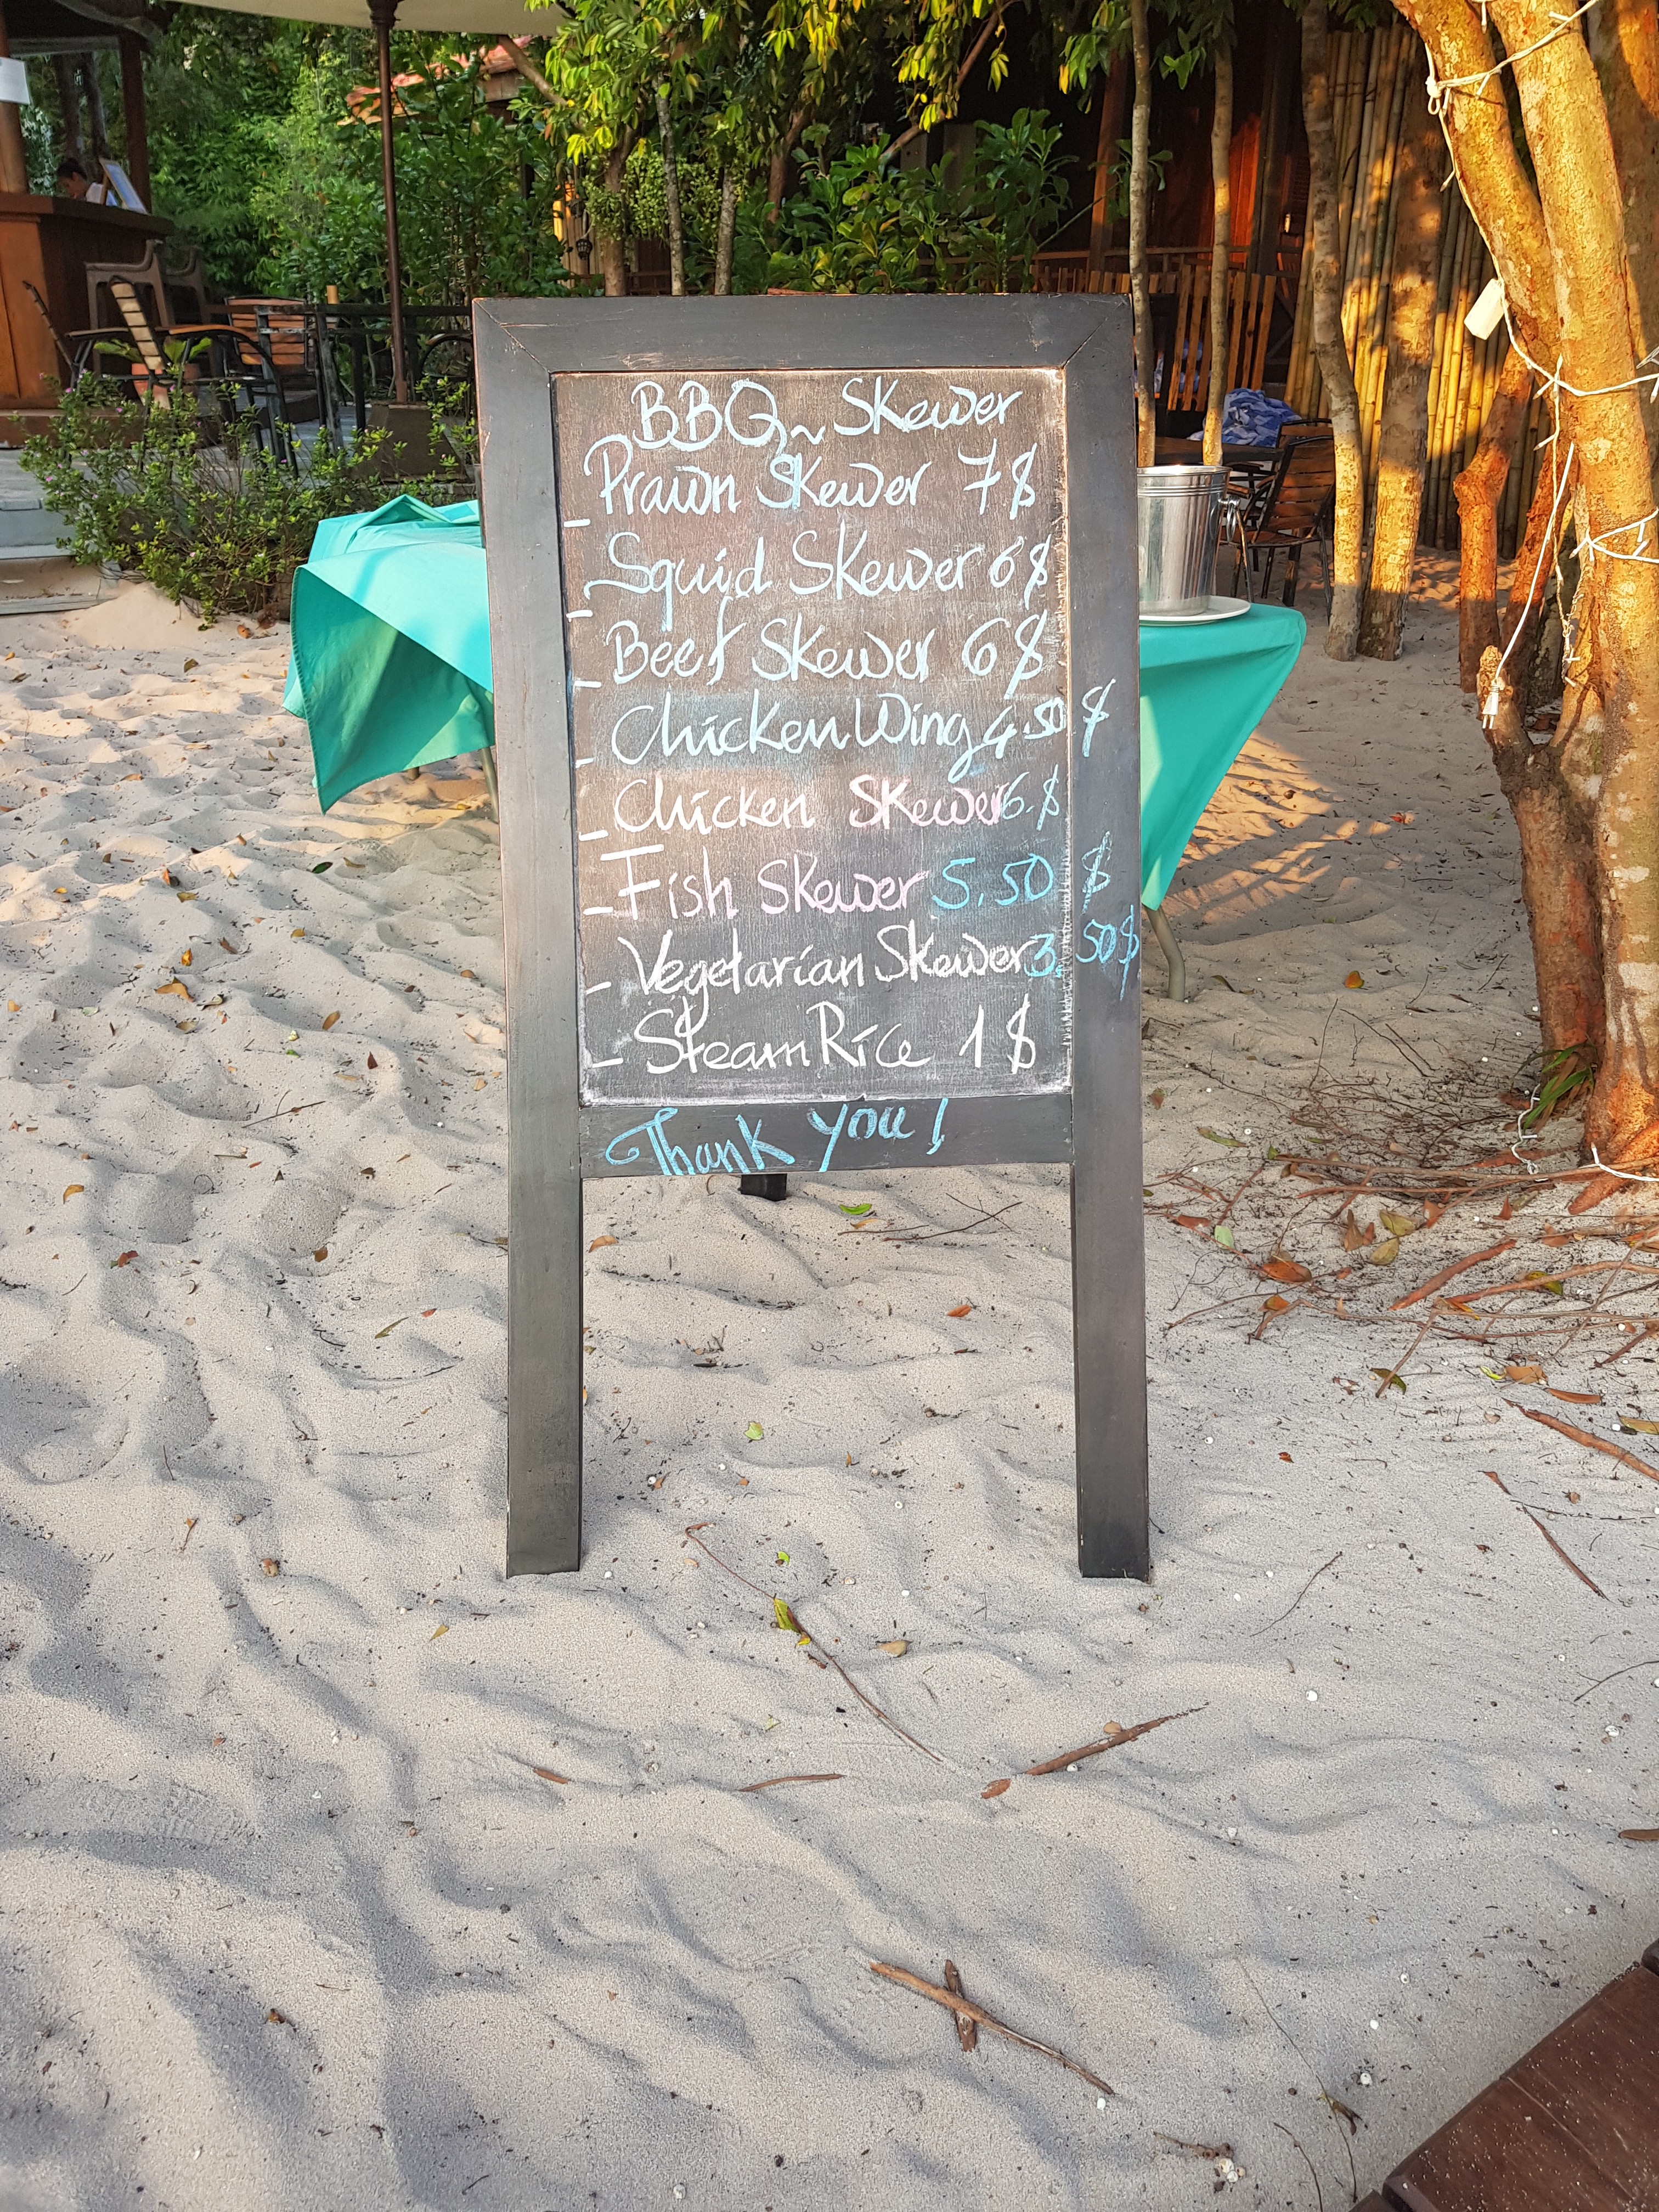 BBQ ~ Skewer
- Prawn Skewer 7$
- Squid Skewer 6$
- Beef Skewer 6$
- Chicken Wing 4.50$
- Chicken Skewer 6.$
- Fish Skewer 5.50$
- Vegetarian Skewer 3.50$
- Steam Rice 1$
Thank you!